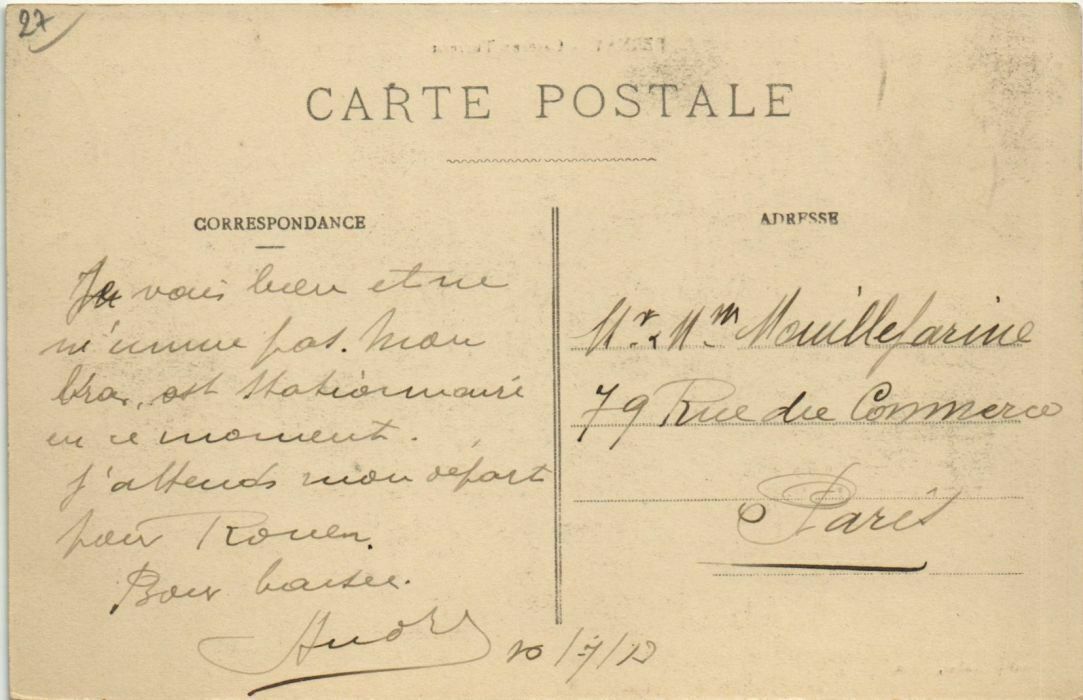 27
CARTE POSTALE
CORRESPONDANCE
ADRESSE
Je vais bien et ne
m'ennuie pas. Mon
bras est stationnaire
en ce moment.
j'attends mon départ
pour Rouen.
Bons baisers.
André
Mr & Mme Mouillefarine
79 Rue du Commerce
Paris